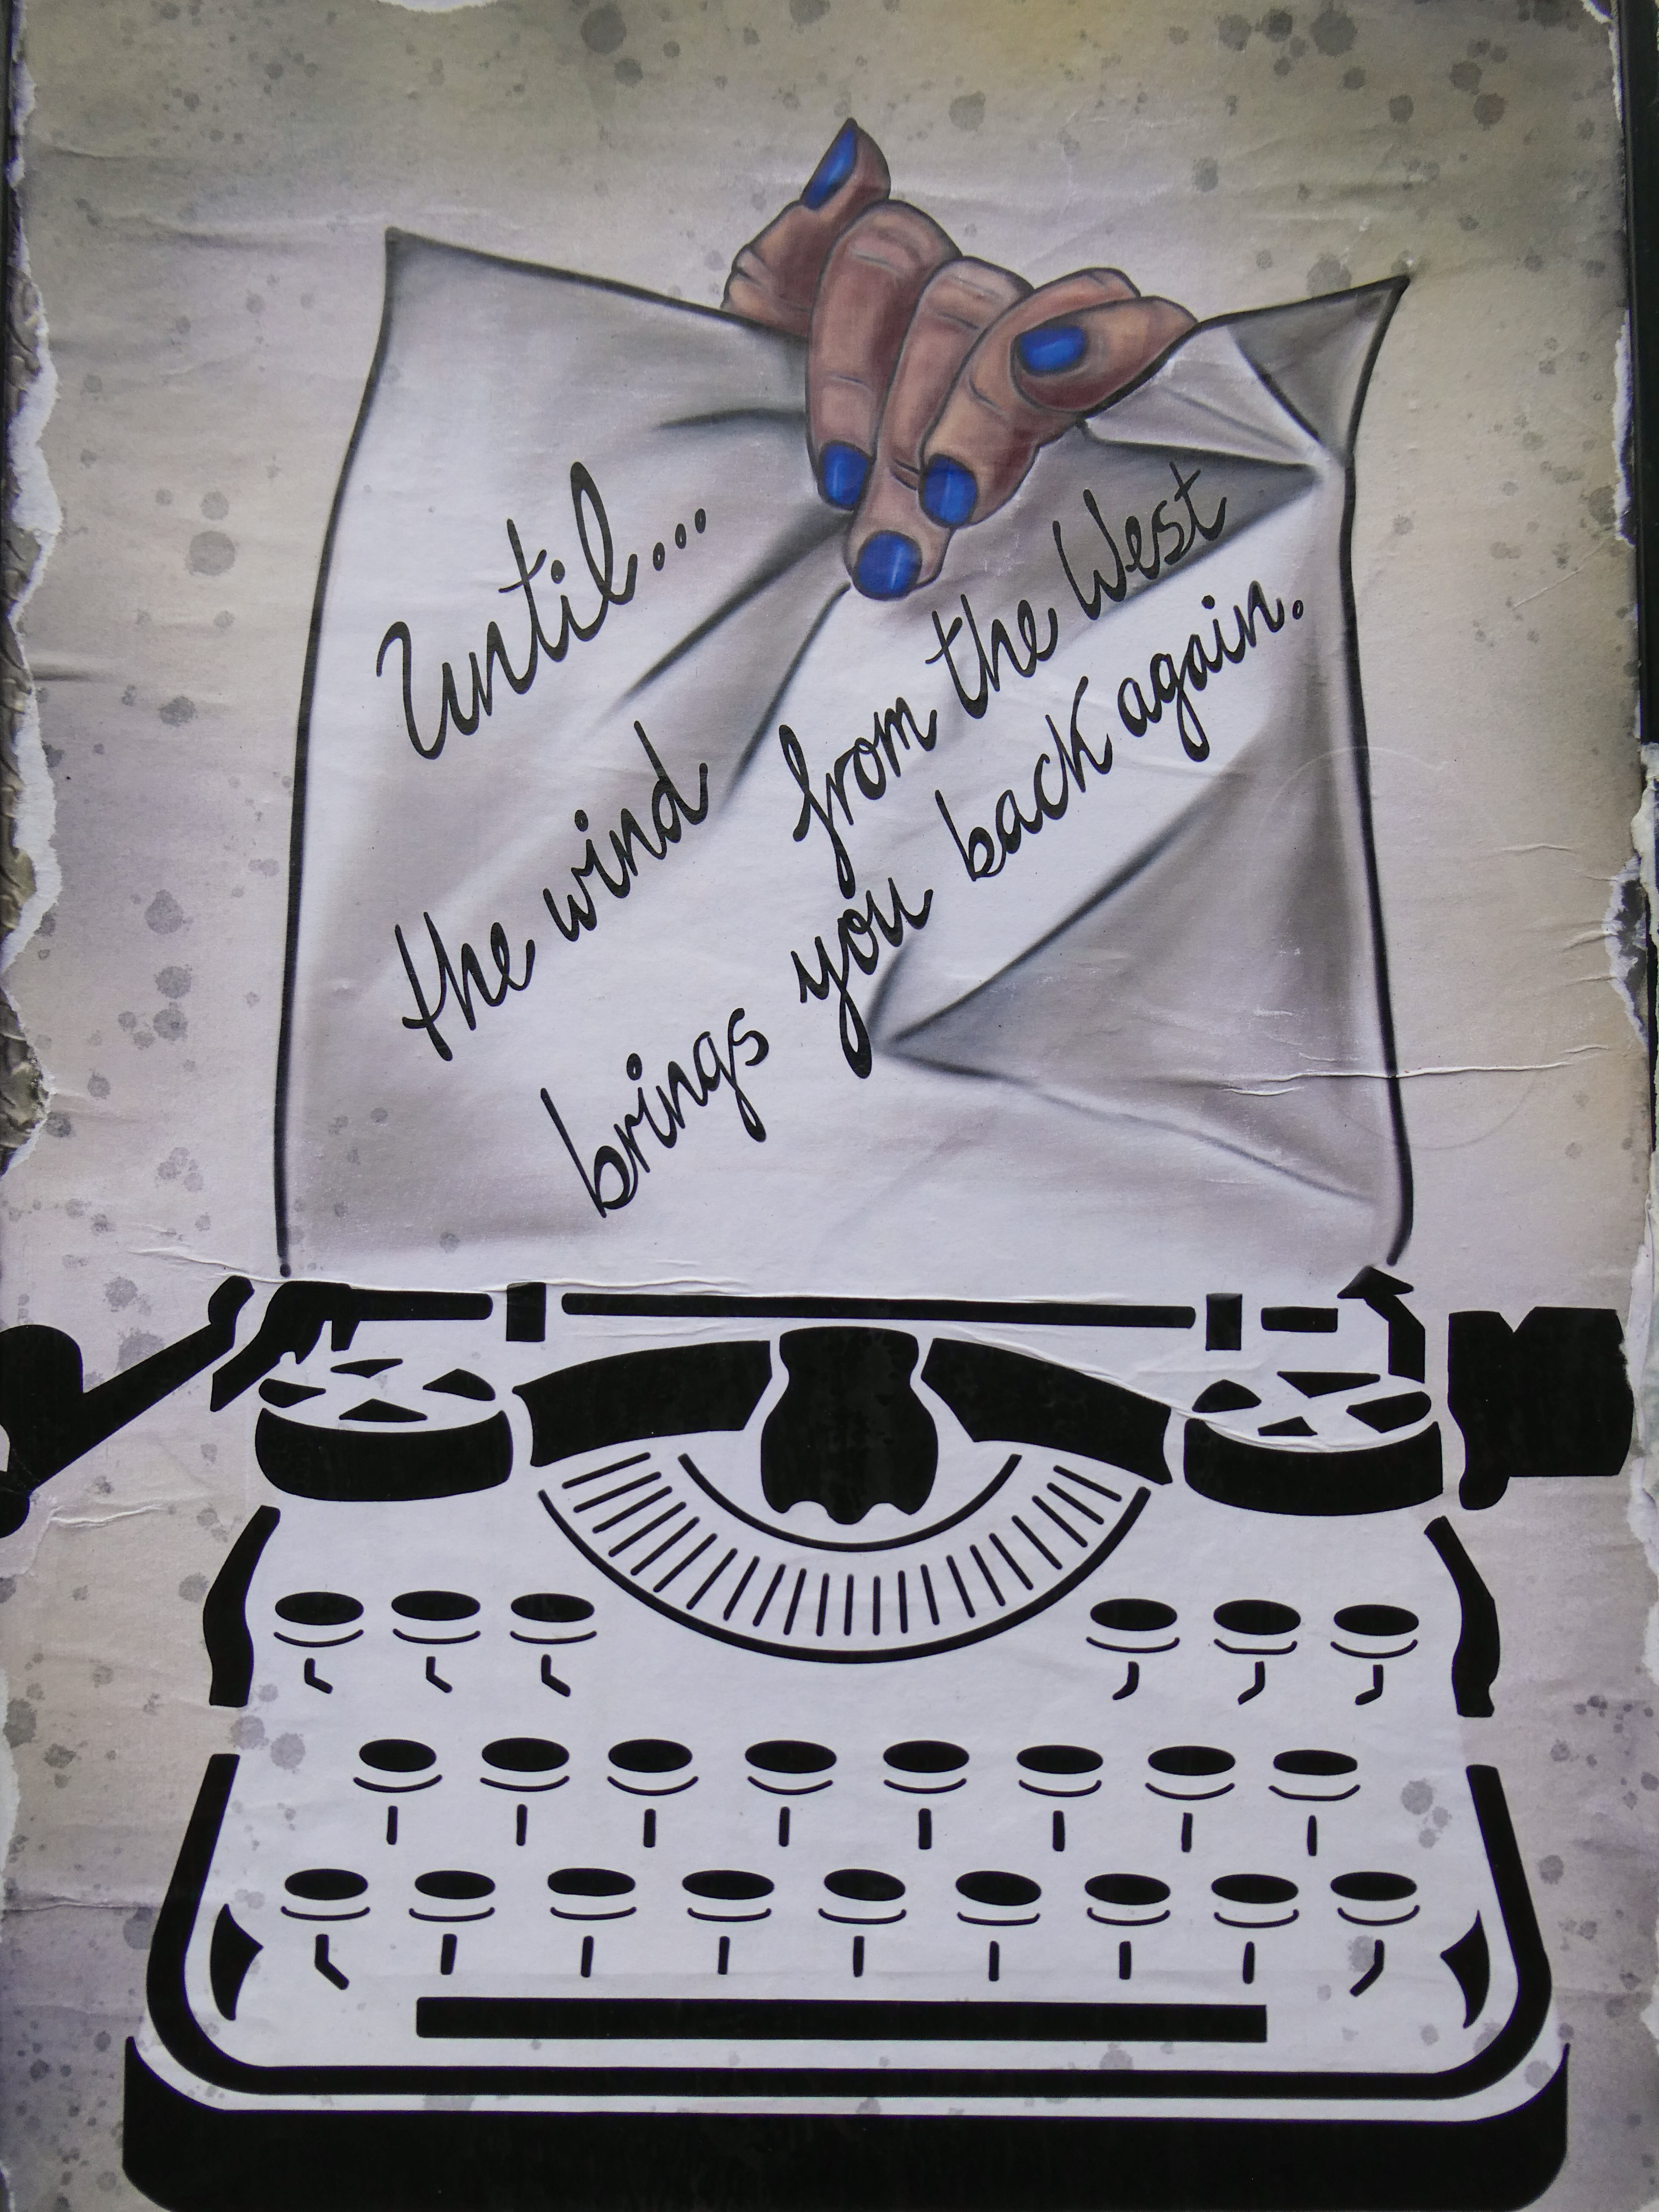 Until....
the wind from the West
brings you back again.